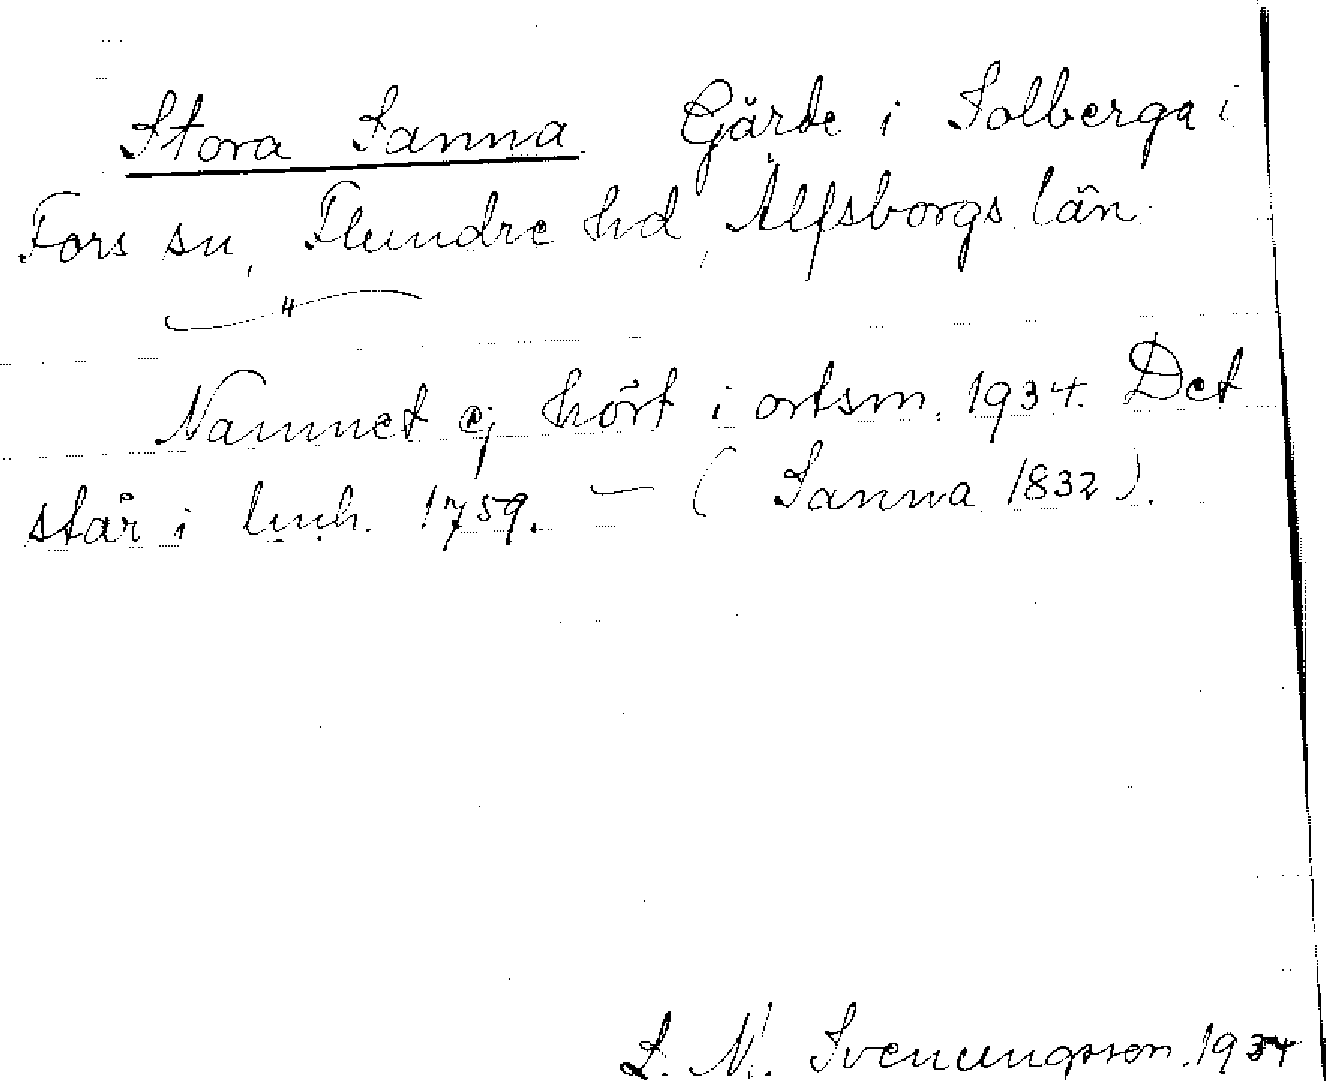 Stora Sanna. Gärde i Solberga i
Fors sn, Flundre hd, Älfsborgs län.
Namnet ej hört i ortsm. 1934. Det
står i lmh. 1759. — (Sanna 1832).
S. N. Svenungsson. 1934